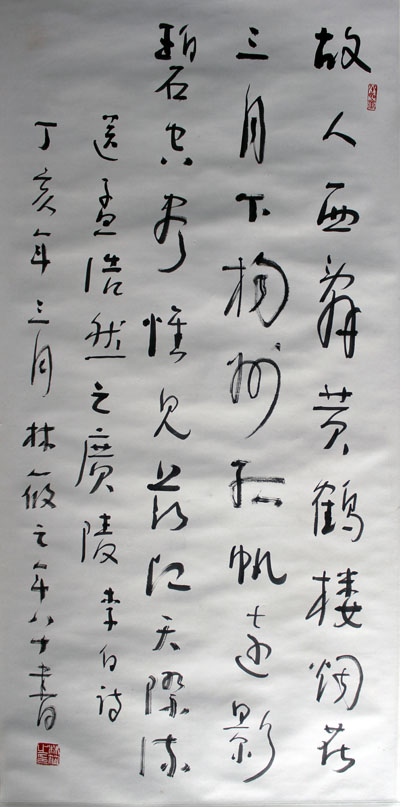 故人西辭黄鶴楼烟花
三月下揚州孤帆远影
碧空尽惟見長江天際流
送孟浩然之廣陵 李白诗
丁亥年三月林筱之年八十書